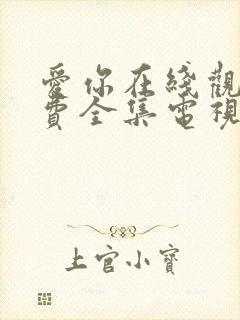 愛你在綫觀
費全集電視
上官小寶